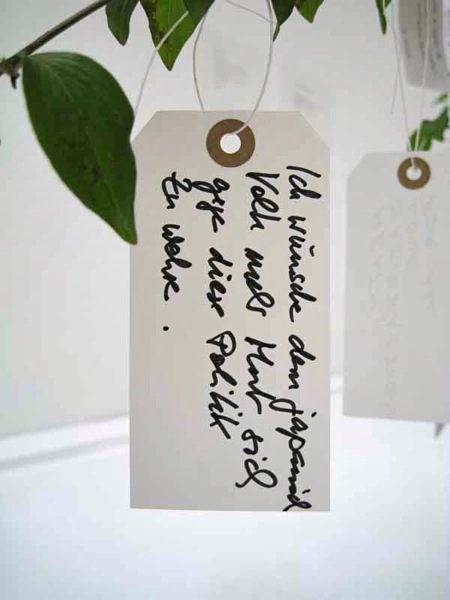 Ich wünsche dem japanisch
Volk mehr Mut sich
gegen diese Politik
zu wehren.